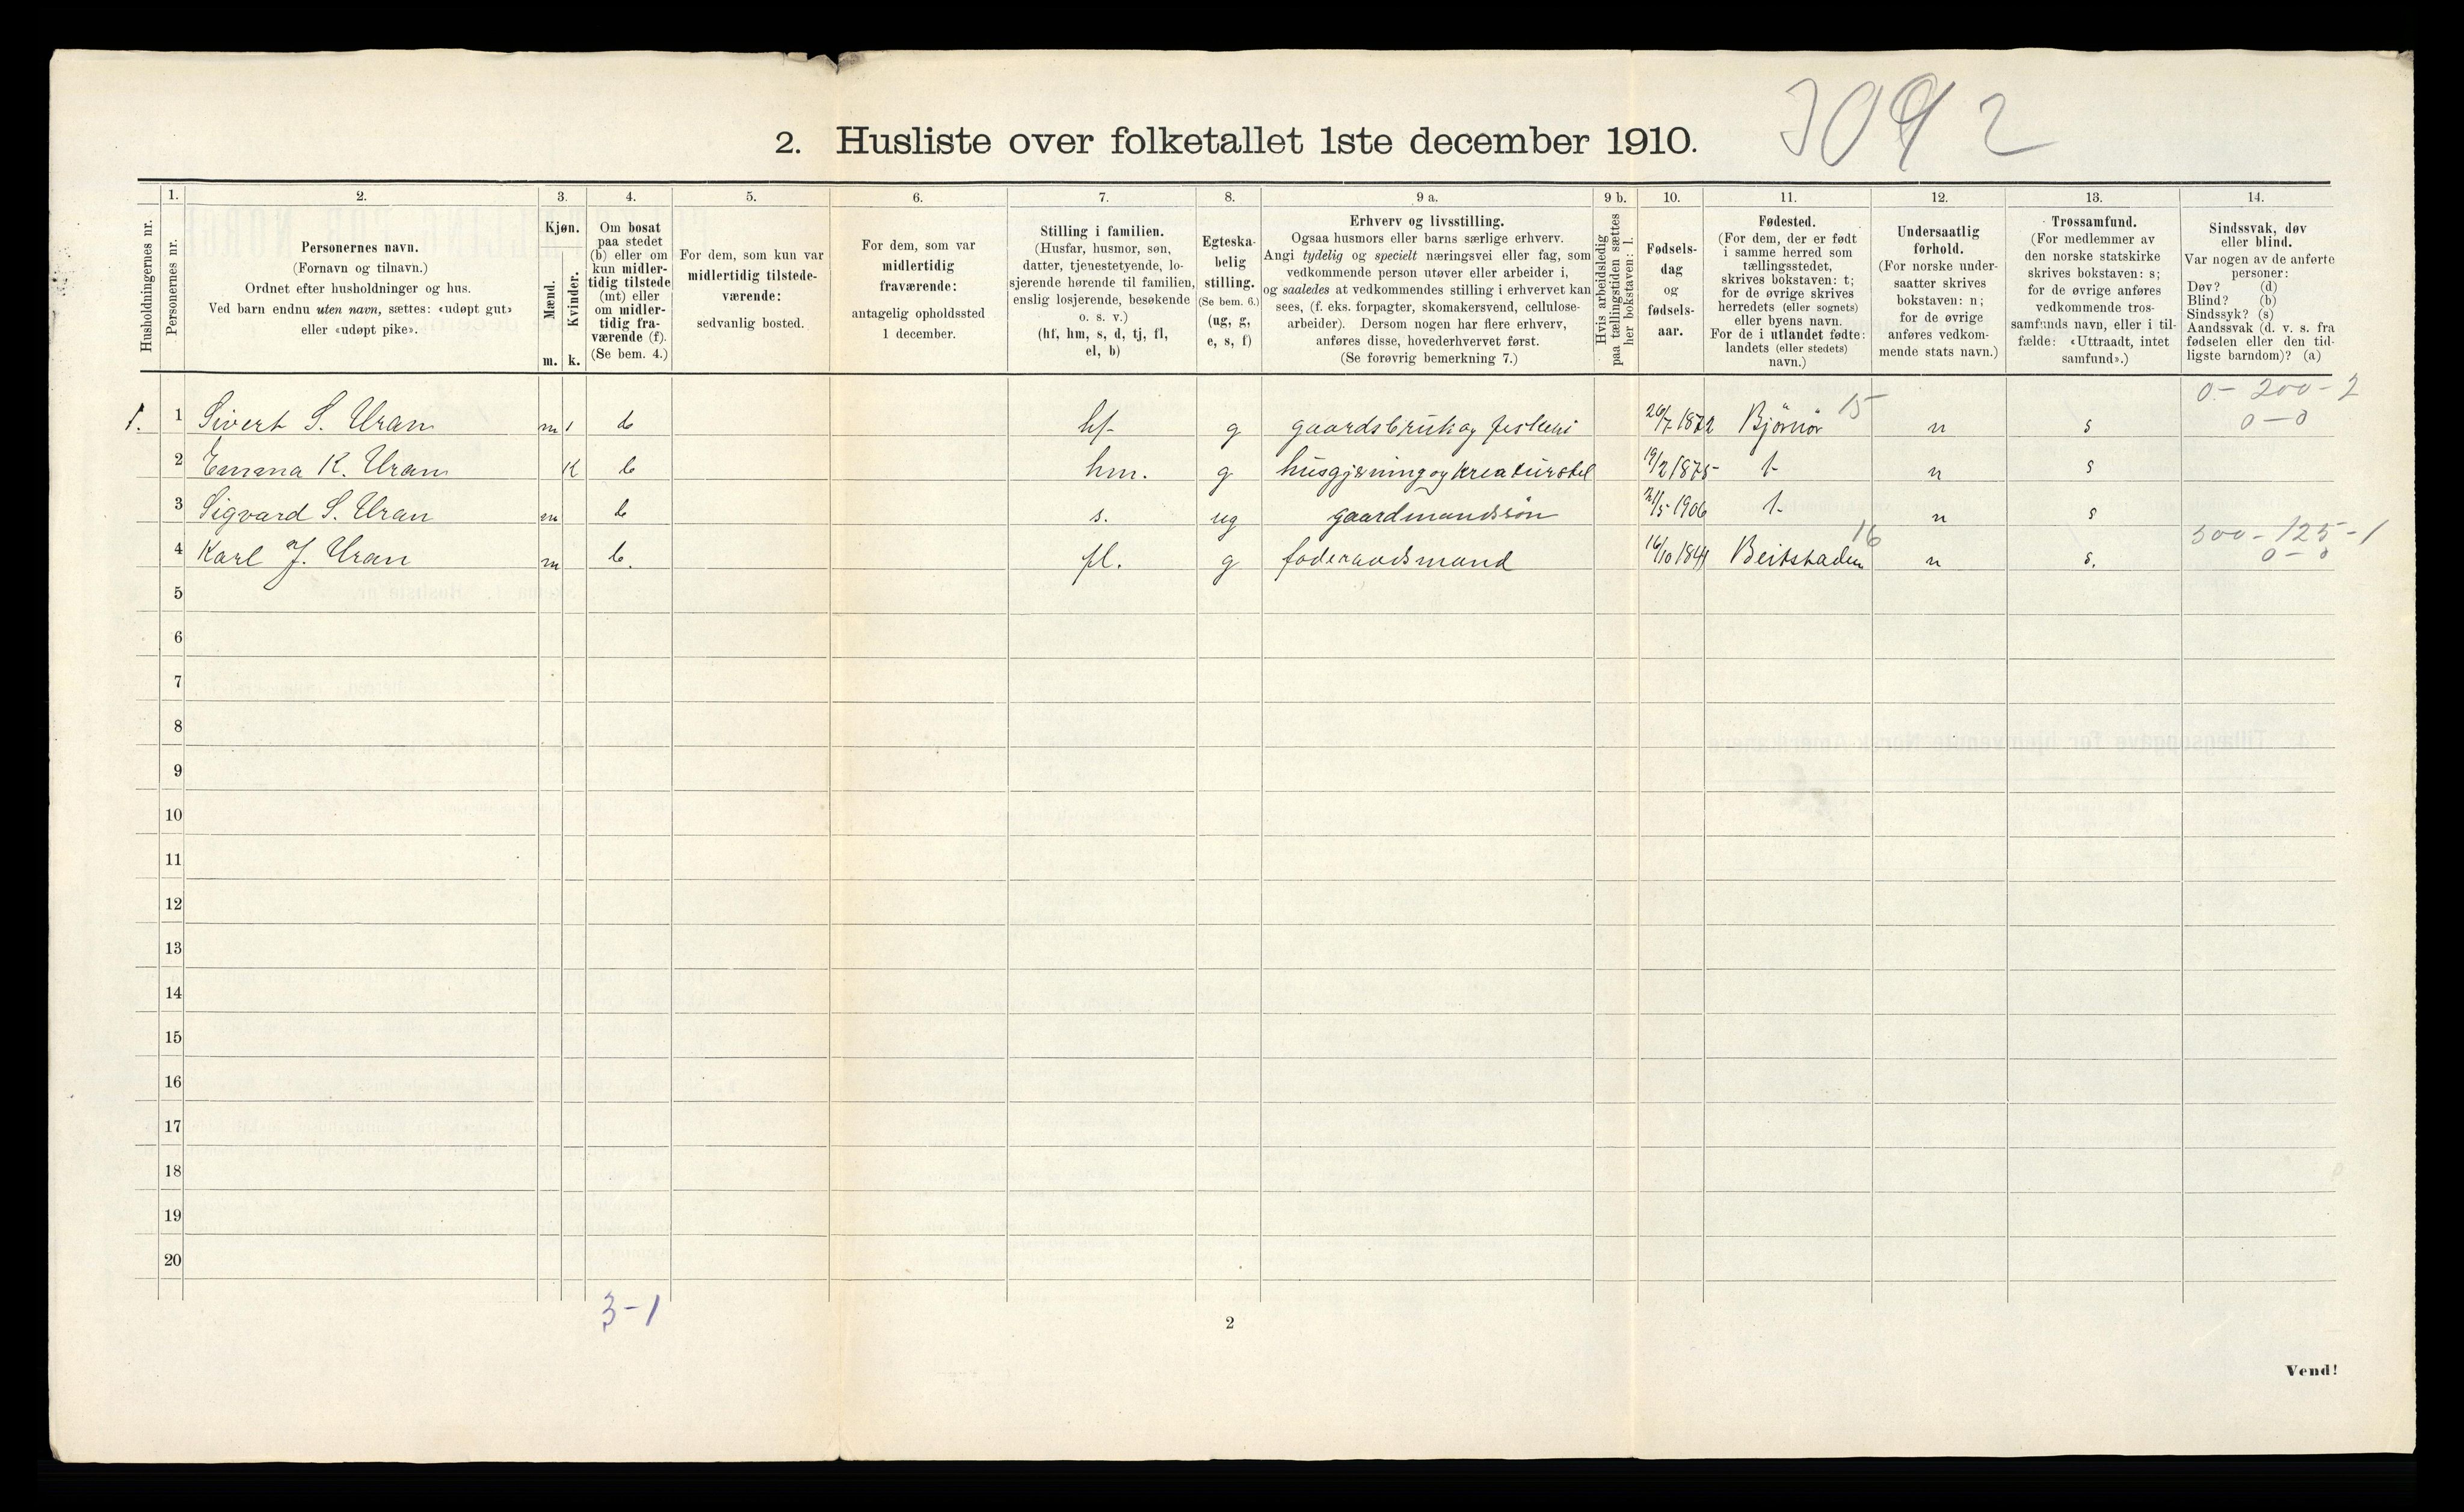 2. Husliste over folketallet 1ste december 1910.
Husholdningernes nr.
1.
Personernes nr.
2.
Personernes navn.
(Fornavn og tilnavn.)
Ordnet efter husholdninger og hus.
Ved barn endnu uten navn, sættes: «udøpt gut»
eller «udøpt pike».
3.
Kjøn.
Mænd.
Kvinder.
m. k.
4.
Om bosat
paa stedet
(b) eller om
kun midler-
tidig tilstede
(mt) eller
om midler-
tidig fra-
værende (f).
(Se bem. 4.)
5.
For dem, som kun var
midlertidig tilstede-
værende:
sedvanlig bosted.
6.
For dem, som var
midlertidig
fraværende:
antagelig opholdssted
1 december.
7.
Stilling i familien.
(Husfar, husmor, søn,
datter, tjenestetyende, lo-
sjerende hørende til familien,
enslig losjerende, besøkende
o. s. v.)
(hf, hm, s, d, tj, fl,
el, b)
8.
Egteska-
belig
stilling.
(Se bem. 6.)
(ug, g,
e, s, f)
9 a.
Erhverv og livsstilling.
Ogsaa husmors eller barns særlige erhverv.
Angi tydelig og specielt næringsvei eller fag, som
vedkommende person utøver eller arbeider i,
og saaledes at vedkommendes stilling i erhvervet kan
sees, (f. eks. forpagter, skomakersvend, cellulose-
arbeider). Dersom nogen har flere erhverv,
anføres disse, hovederhvervet først.
(Se forøvrig bemerkning 7.)
9 b.
Hvis arbeidsledig
paa tællingstiden sættes
her bokstaven: l.
10.
Fødsels-
dag
og
fødsels-
aar.
11.
Fødested.
(For dem, der er født
i samme herred som
tællingsstedet,
skrives bokstaven: t;
for de øvrige skrives
herredets (eller sognets)
eller byens navn.
For de i utlandet fødte:
landets (eller stedets)
navn.)
12.
Undersaatlig
forhold.
(For norske under-
saatter skrives
bokstaven: n;
for de øvrige
anføres vedkom-
mende stats navn.)
13.
Trossamfund.
(For medlemmer av
den norske statskirke
skrives bokstaven: s;
for de øvrige anføres
vedkommende tros-
samfunds navn, eller i til-
fælde: «Uttraadt, intet
samfund».)
14.
Sindssvak, døv
eller blind.
Var nogen av de anførte
personer:
Døv? (d)
Blind? (b)
Sindssyk? (s)
Aandssvak (d. v. s. fra
fødselen eller den tid-
ligste barndom)? (a)
15 0 - 200 - 2
1. 1 Sivert S. Uran m 1 b hf. g gaardsbruk og 26/7 1872 Bjørnør n s 0 - 0
2 Emma K. Uran K b hm. g husgjerning og kreaturstel 19/2 1875 t. n s
3 Sigvard S. Uran m b s. ug gaardmandssøn 21/5 1906 t. n s
16 500 - 125 - 1
4 Karl J. Uran m b. fl. g føderaadsmand 16/10 1841 Beitstaden n s. 0 - 0
5
6
7
8
9
10
11
12
13
14
15
16
17
18
19
20
3 - 1
2
Vend!